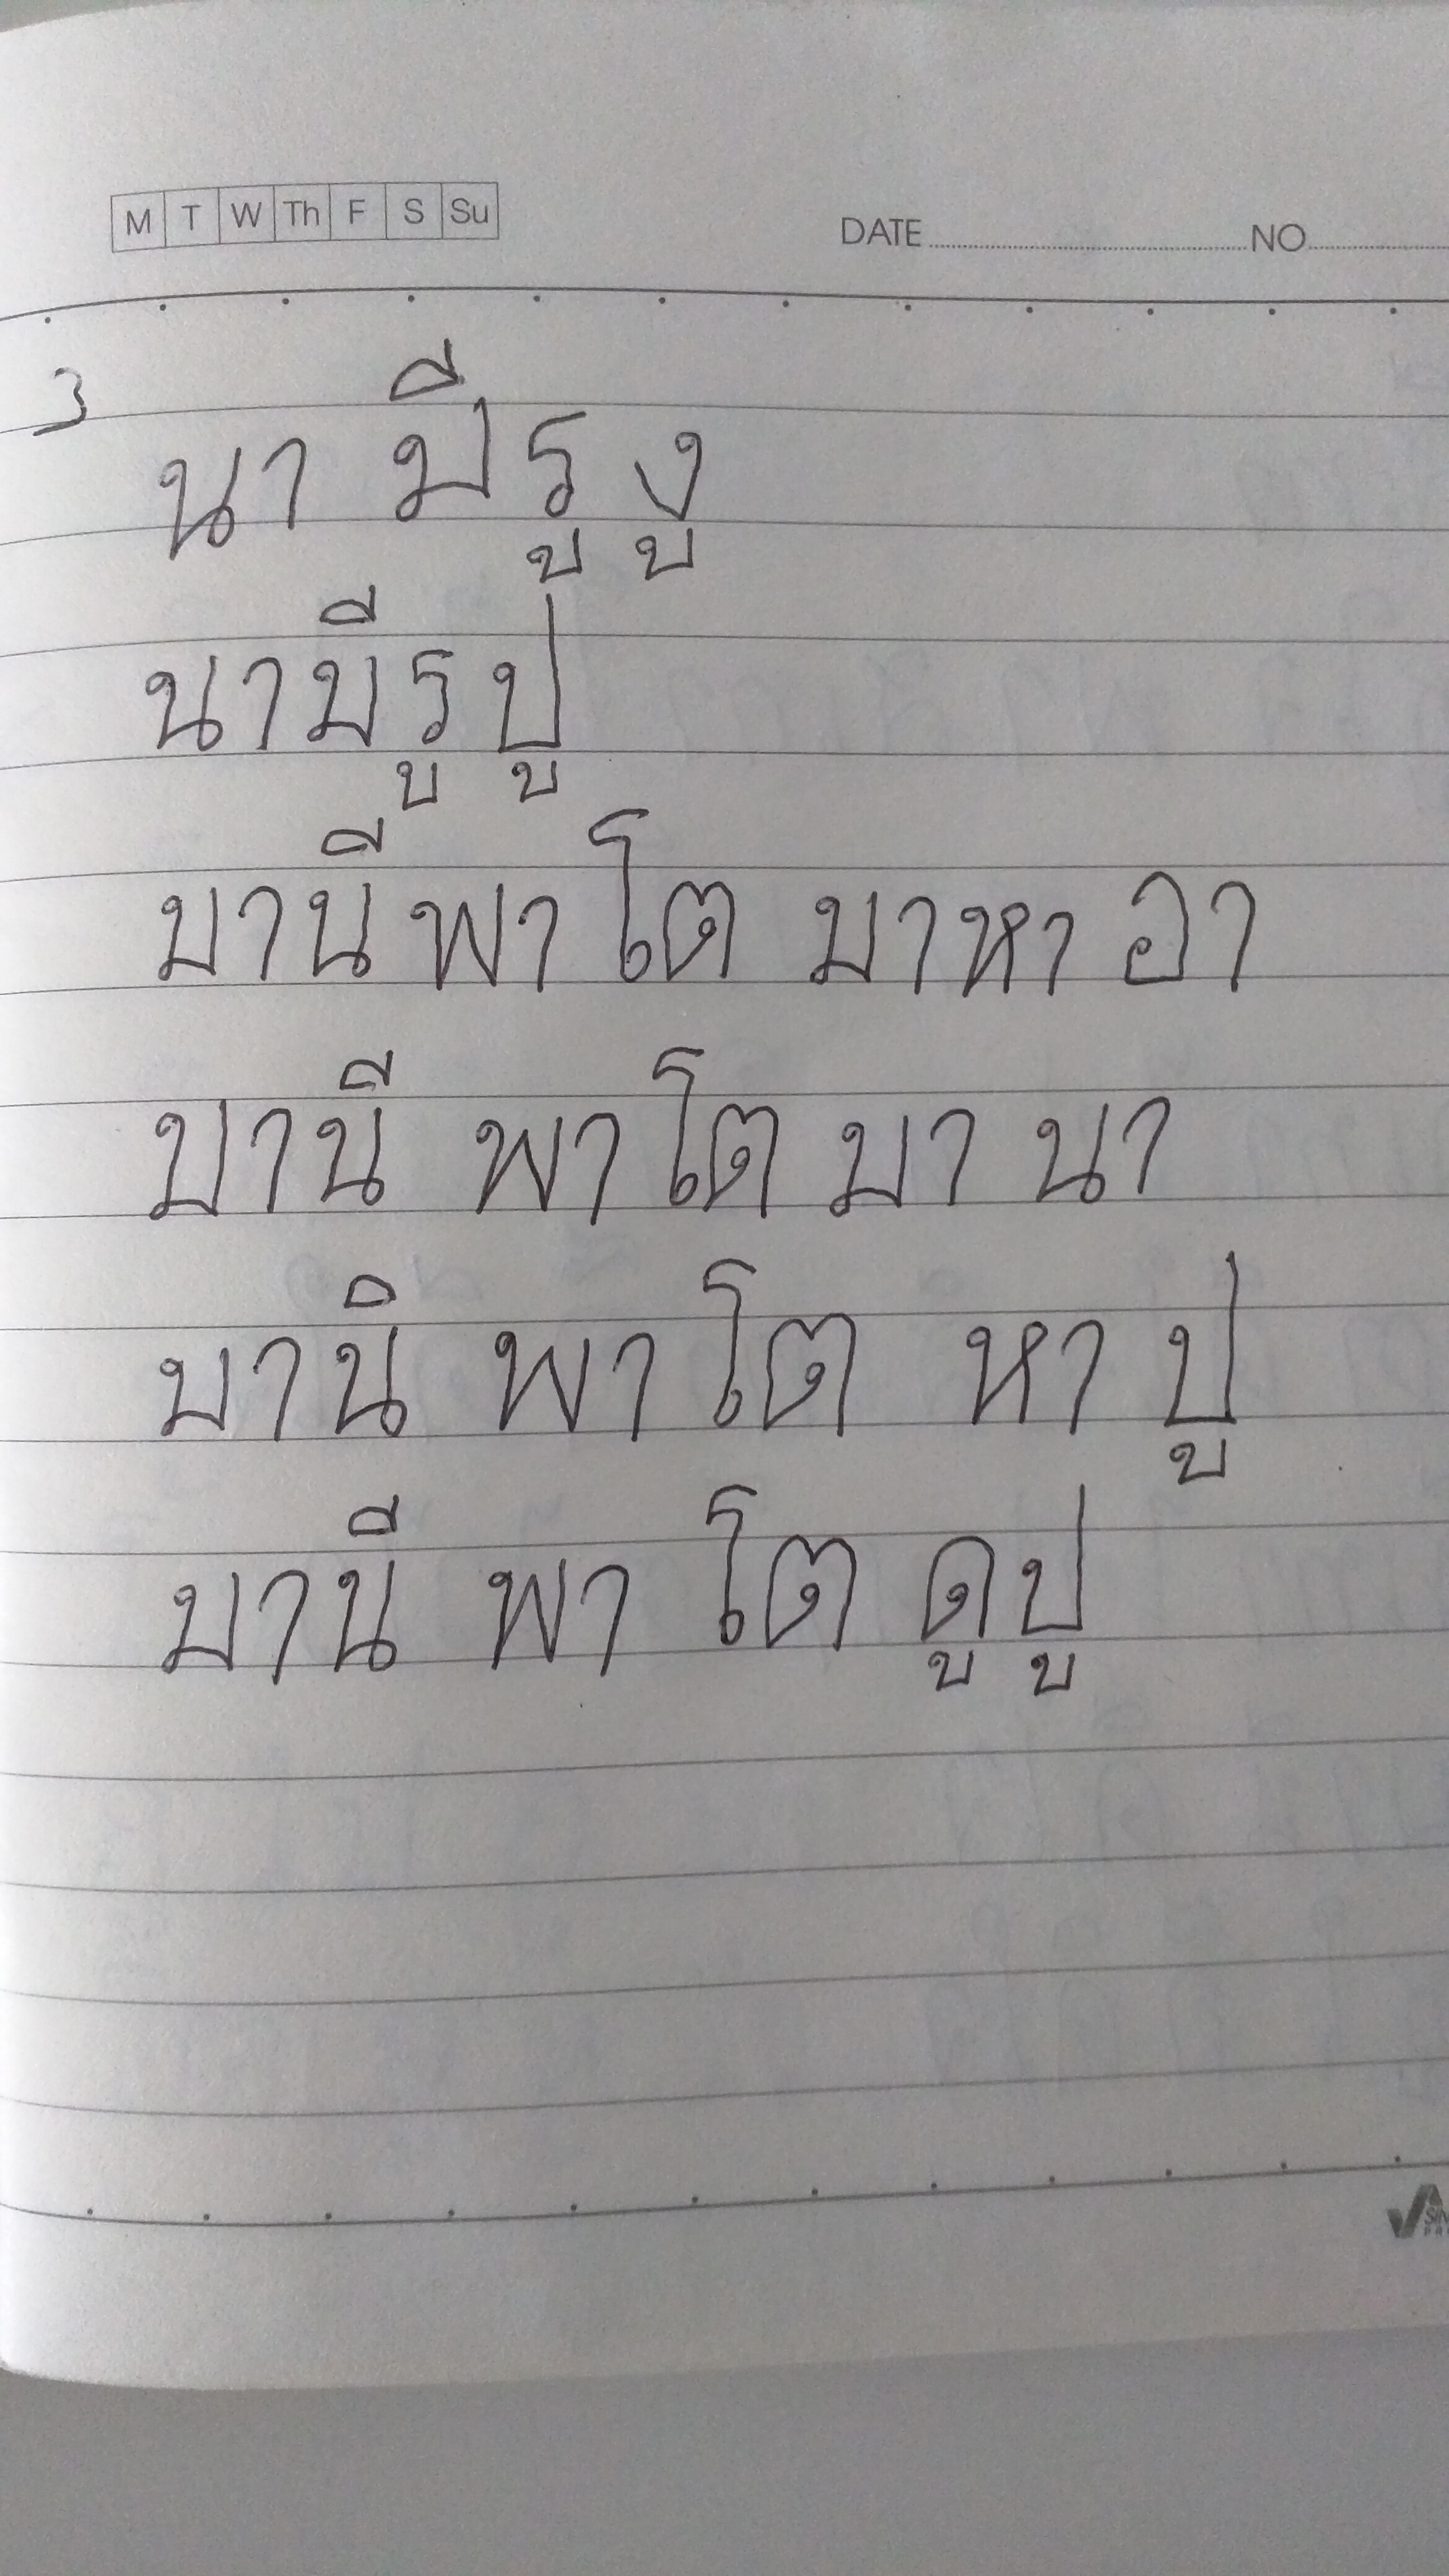 M T W Th F S Su DATE NO
3
นา มีรู งู
นามีรู ปู
มานีพา โต มาหา อา
มานี พา โต มา นา
มานิ พา โต หา ปู
มานี พา โต ดูปู